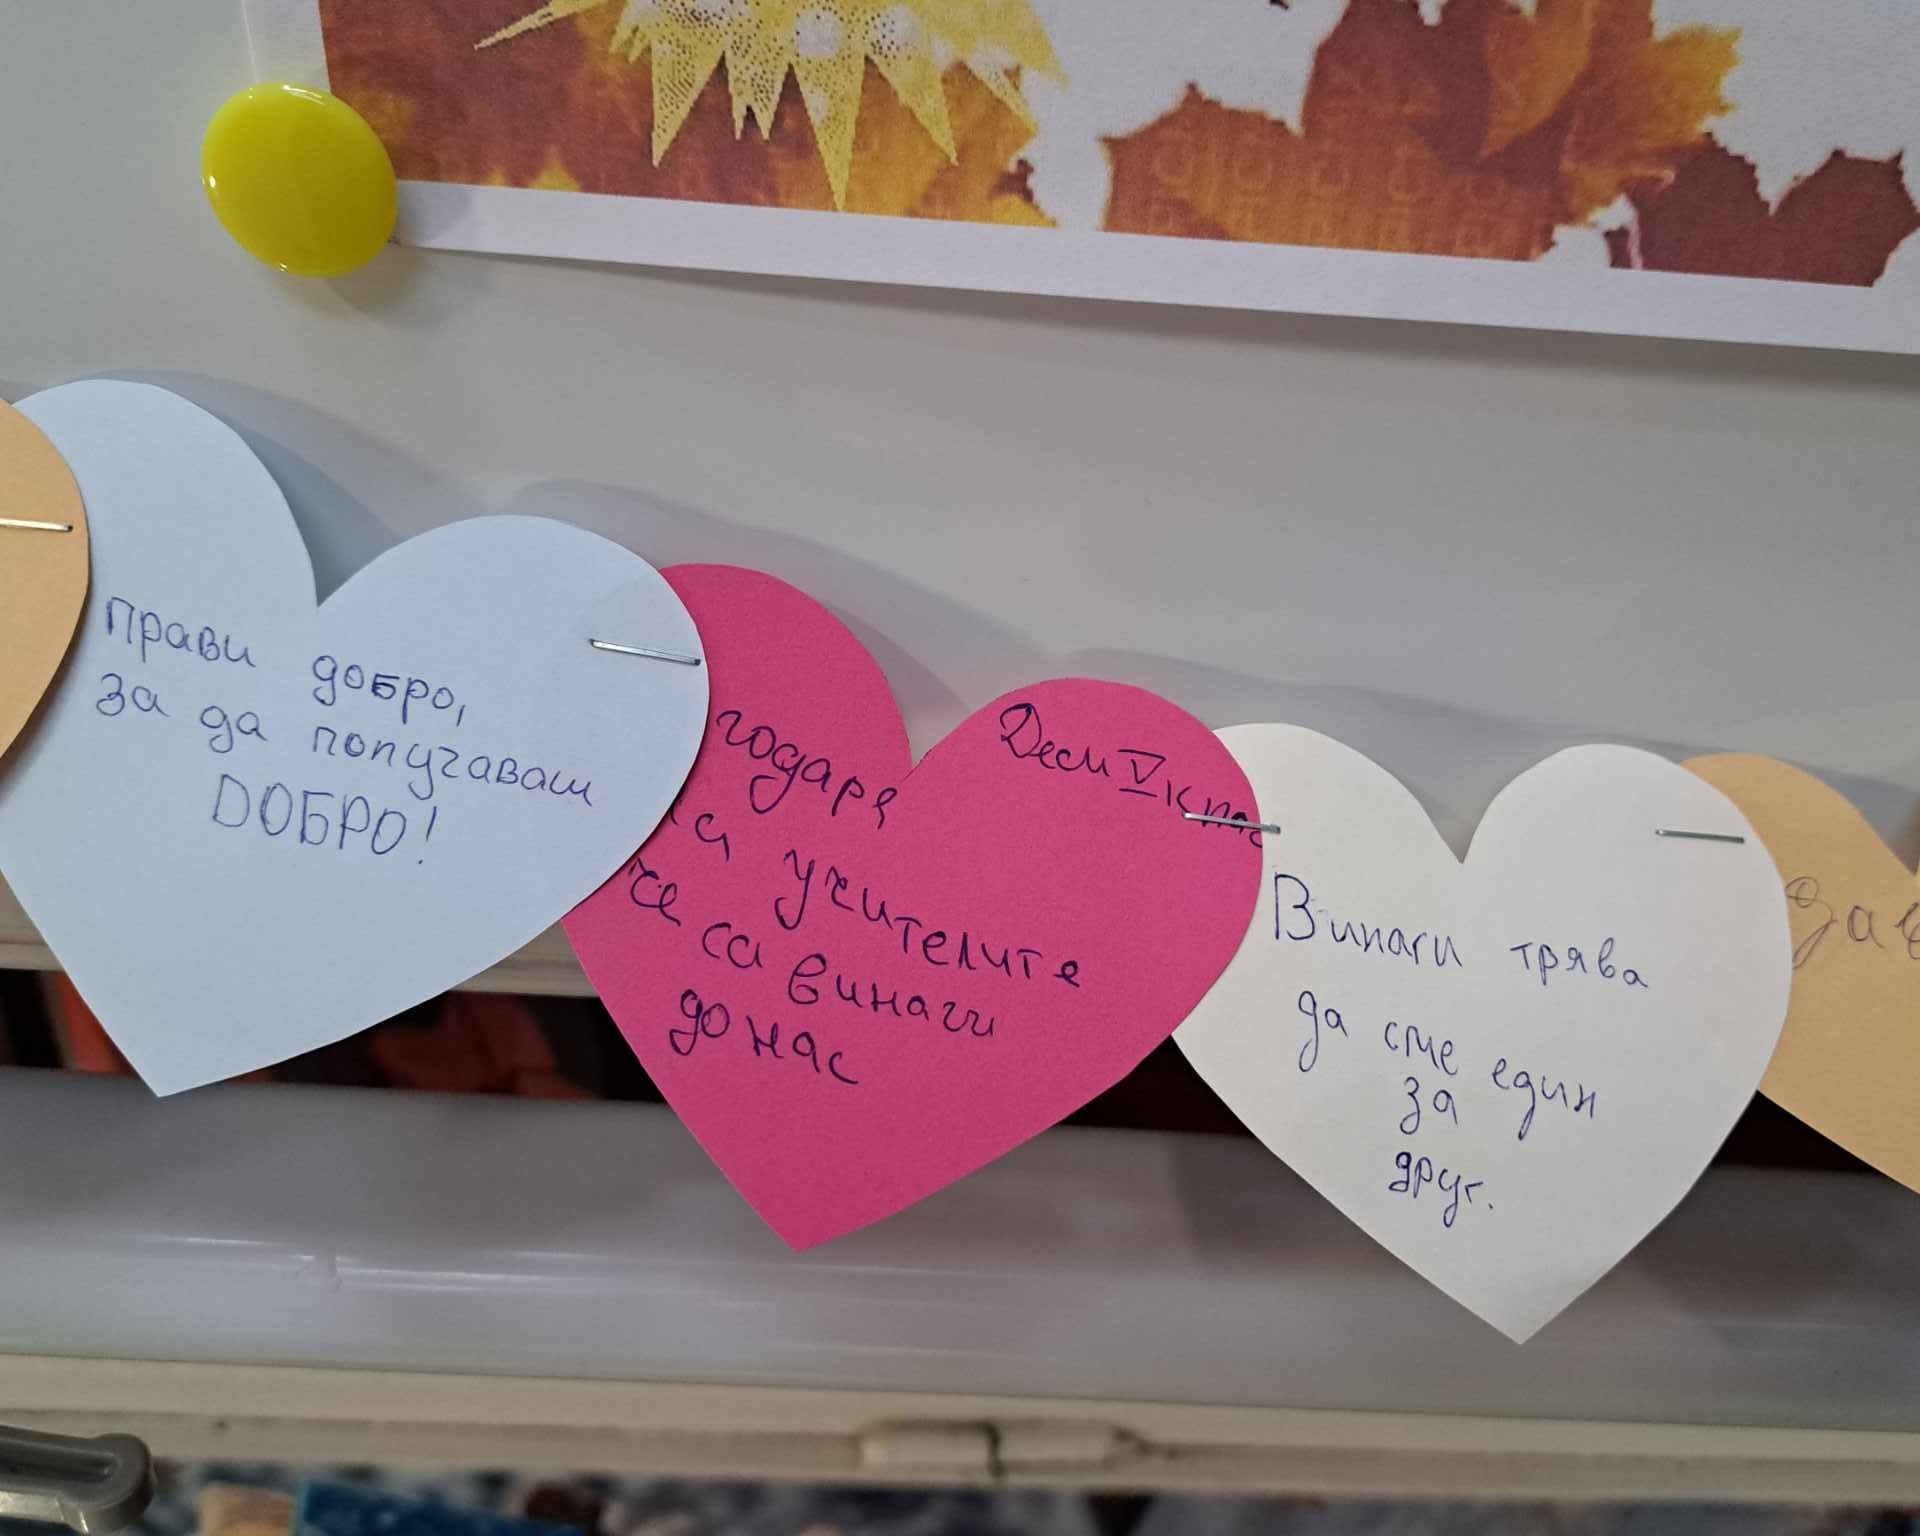 Прави добро,
за да получаваш
ДОБРО!
годаря
на учителите
че са винаги
до нас
Деси V клас
Винаги трябва
да сме един
за
друг.